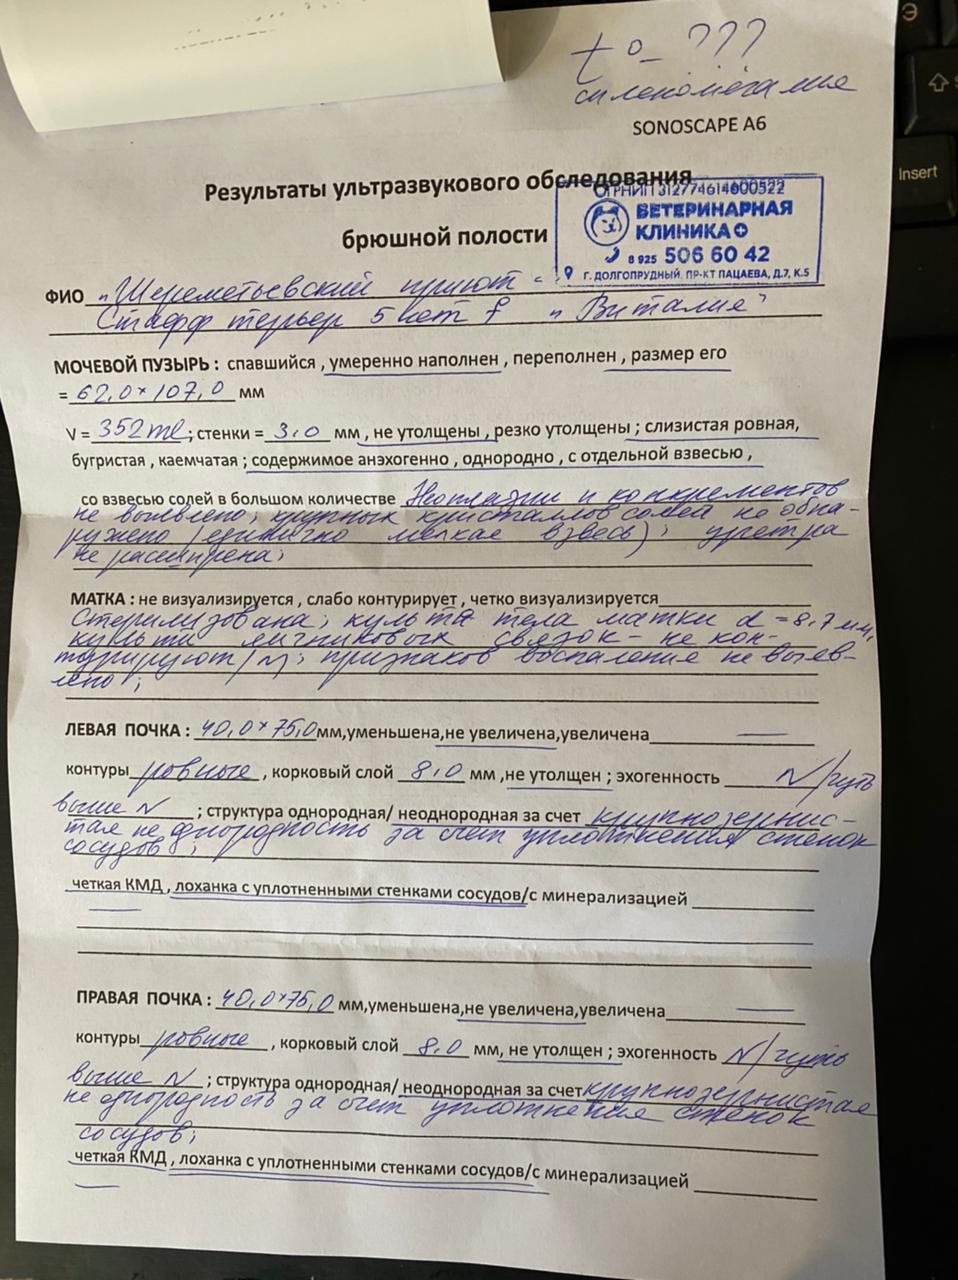 t° - ???
спленомегалия
SONOSCAPE A6
Результаты ультразвукового обследования
брюшной полости
ОГРНИП 312774614600522
ВЕТЕРИНАРНАЯ
КЛИНИКА
8 925 506 60 42
Г. ДОЛГОПРУДНЫЙ, ПР-КТ ПАЦАЕВА, Д.7, К.5
ФИО „Шереметьевский приют“
Стафф терьер 5 лет f „Виталия“
МОЧЕВОЙ ПУЗЫРЬ : спавшийся , умеренно наполнен , переполнен , размер его
= 62,0 × 107,0 мм
V = 352 ml ; стенки = 3,0 мм , не утолщены , резко утолщены ; слизистая ровная,
бугристая , каемчатая ; содержимое анэхогенно , однородно , с отдельной взвесью ,
со взвесью солей в большом количестве Неоплазии и конкрементов
не выявлено; крупных кристаллов солей не обна-
ружено (единично мелкая взвесь); уретра
не расширена;
МАТКА : не визуализируется , слабо контурирует , четко визуализируется
Стерилизована; культя тела матки d = 8,7 мм,
культи яичниковых связок - не кон-
турируют (N); признаков воспаления не выяв-
лено;
ЛЕВАЯ ПОЧКА : 40,0 × 75,0 мм,уменьшена,не увеличена,увеличена —
контуры ровные , корковый слой 8,0 мм ,не утолщен ; эхогенность N/чуть
выше N ; структура однородная/ неоднородная за счет крупнозернис-
тая неоднородность за счет уплотнения стенок
сосудов;
четкая КМД , лоханка с уплотненными стенками сосудов/с минерализацией
—
ПРАВАЯ ПОЧКА : 40,0 × 75,0 мм,уменьшена,не увеличена,увеличена —
контуры ровные , корковый слой 8,0 мм, не утолщен ; эхогенность N/чуть
выше N ; структура однородная/ неоднородная за счет крупнозернистая
неоднородность за счет уплотнения стенок
сосудов;
четкая КМД , лоханка с уплотненными стенками сосудов/с минерализацией
—
Э
Insert